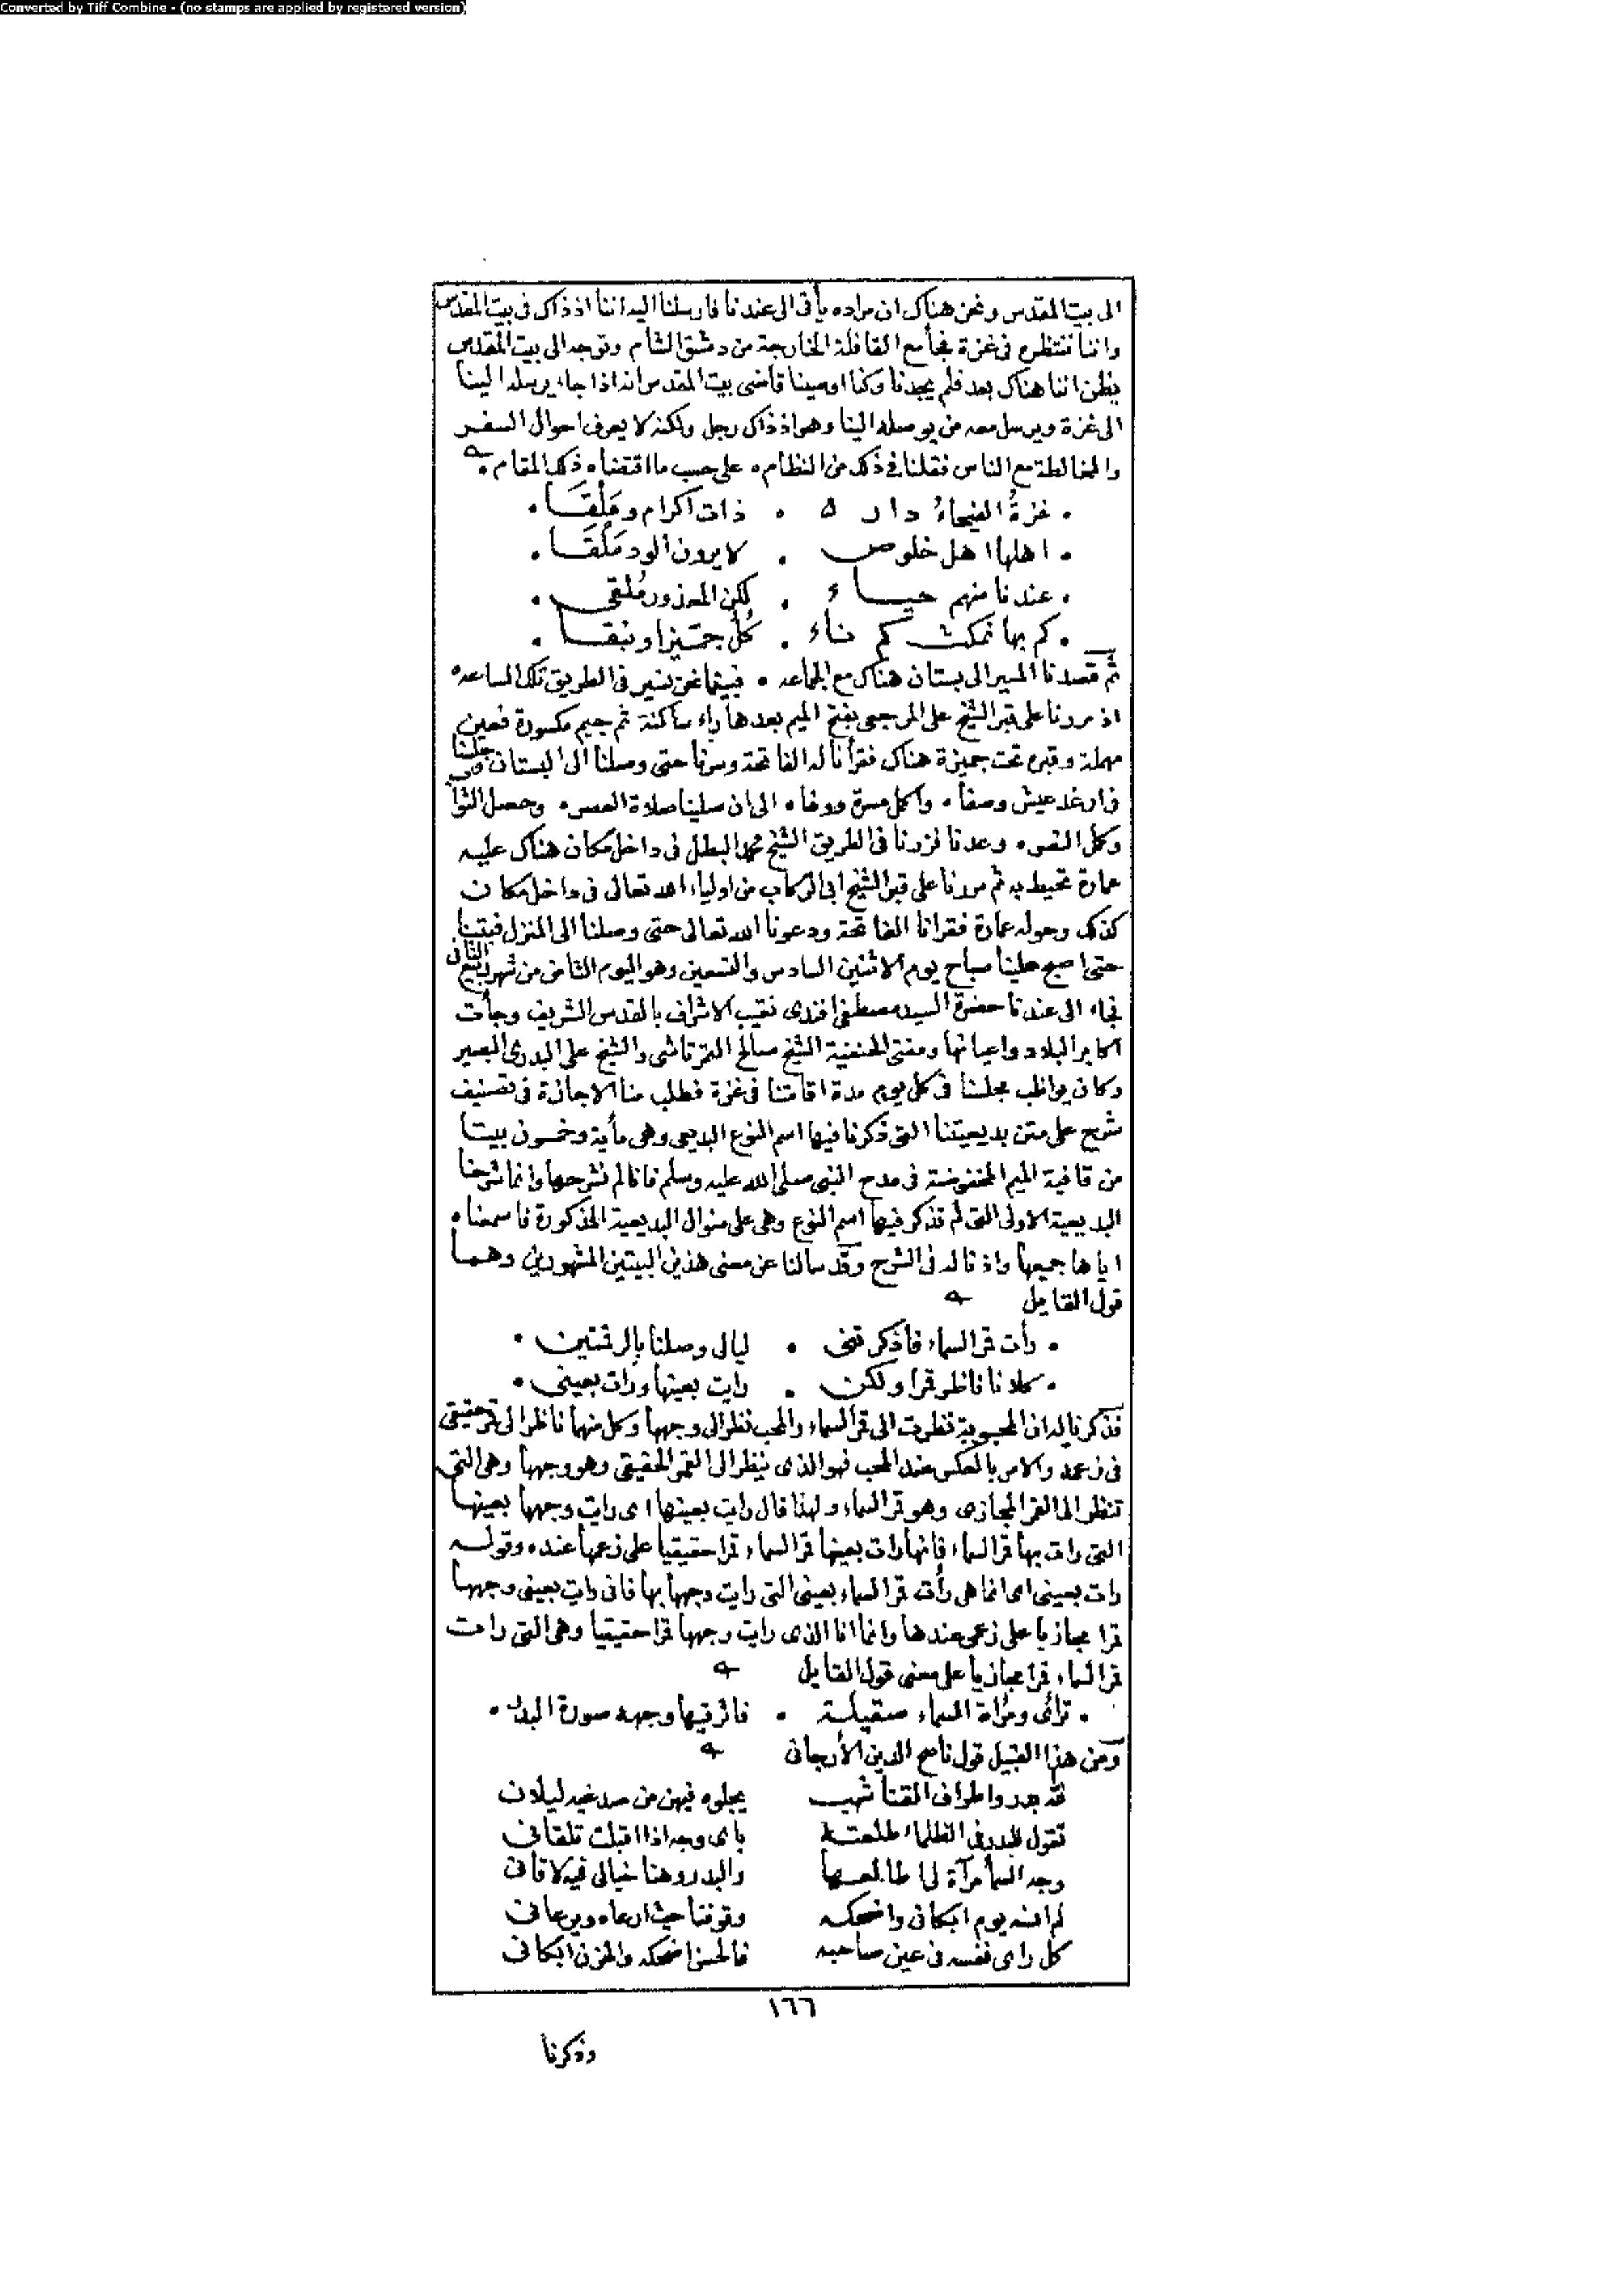 Converted by Tiff Combine - (no stamps are applied by registered version)
الى بيت المقدس ونحن هناك ان مراده يأتى الى عندنا فارسلنا اليه اننا اذ ذاك فى بيت المقدس
واننا ننتظره فى غزة فجأ مع القافلة الخارجة من دمشق الشام وتوجه الى بيت المقدس
يظن اننا هناك بعد فلم يجدنا وكنا اوصينا قاضى بيت المقدس انه اذا جاء يرسله الينا
الى غزة ويرسل معه من يوصله الينا وهو اذ ذاك رجل ولكنه لا يعرف احوال السفر
والمخالطة مع الناس فقلنا فى ذلك من النظام ٠ على حسب ما اقتضاه ذلك المقام ٠
٠ غزةُ الفيحاءُ دار ٥ ٠ ذات اكرام ومَلْقَا ٠
٠ اهلها اهل خلوص ٠ لا يرون الود مَلْقَا ٠
٠ عندنا منهم حياء ٠ لكن المعذور مُلقى ٠
٠ كم بها نمكث كم ناء ٠ كُلْ جمّيزا ونبقا ٠
ثم قصدنا المسير الى بستان هناك مع الجماعه ٠ فبينما نحن نسير فى الطريق تلك الساعه
اذ مررنا على قبر الشيخ على المرجعى بفتح الميم بعدها راء ساكنة ثم جيم مكسورة فعين
مهملة وقبره تحت جميزة هناك فقرأنا له الفاتحة وسرنا حتى وصلنا الى البستان وجلسنا
فى ارغد عيش وصفأ ٠ واكمل مسرة ووفاء ٠ الى ان صلينا صلاة العصر ٠ وحصل الثوا
وكمل النصر ٠ وعدنا فزرنا فى الطريق الشيخ محمد البطل فى داخل مكان هناك عليه
عمارة تحيط به ثم مررنا على قبر الشيخ ابى الركاب من اولياء الله تعالى فى داخل مكان
كذلك وحوله عمارة فقرانا الفاتحة ودعونا الله تعالى حتى وصلنا الى المنزل فبتنا
حتى اصبح علينا صباح يوم الاثنين السادس والتسعين وهو اليوم الثامن من شهر ربيع الثانى
فجاء الى عندنا حضرة السيد مصطفى افندى نقيب الاشراف بالقدس الشريف وجأت
اكابر البلاد واعيانها ومفتى الحنفية الشيخ صالح التمرتاشى والشيخ على البدرى البصير
وكان يواظب مجلسنا فى كل يوم مدة اقامتنا فى غزة فطلب منا الاجازة فى تصنيف
شرح على متن بديعيتنا التى ذكرنا فيها اسم النوع البديعى وهى مأية وخمسون بيتا
من قافية الميم المخفوضة فى مدح النبى صلى الله عليه وسلم فانا لم نشرحها وانما شرحنا
البديعية الاولى التى لم تذكر فيها اسم النوع وهى على منوال البديعية المذكورة فاسمعناه
اياها جميعها واذنا له فى الشرح وقد سالنا عن معنى هذين البيتين المشهورين وهما
قول القايل
٠ رأت قمر السماء فاذكرتنى ٠ ليالى وصلنا بالرقمتين ٠
٠ كلانا ناظر قمرا ولكن ٠ رايت بعينها ورأت بعينى ٠
فذكرنا له ان المحبوبة نظرت الى قمر السماء والمحب نظر الى وجهها وكل منهما ناظر الى قمر حقيقى
فى زعمه والامر بالعكس عند المحب فهو الذى ينظر الى القمر الحقيقى وهو وجهها وهى التى
تنظر الى القمر المجازى وهو قمر السماء ولهذا قال رايت بعينها اى رايت وجهها بعينها
التى رات بها قمر السماء فانها رات بعينها قمر السماء قمرا حقيقيا على زعمها عنده وقوله
رات بعينى اى انما هى رأت قمر السماء بعينى التى رايت وجهها بها فانى رايت بعينى وجهها
قمرا مجازيا على زعمى عندها وانما انا الذى رايت وجهها قمرا حقيقيا وهى التى رات
قمر السماء قمرا مجازيا على معنى قول القايل
٠ ترأى ومرأة السماء صقيلة ٠ فاثر فيها وجهه صورة البدر ٠
ومن هذا القبيل قول ناصح الدين الأرجانى
واطراف القنا شهب يجلوه فيهن من
تقول للبدر فى الظلماء طلعته باى وجه اذا اقبلت تلقانى
وجه السمأ مرآة لى طالعها والبدر وهنا خيالى فيه لاقانى
لم انسه يوم ابكانى واضحكه وقوفنا حيث ارعاه ويرعانى
كل راى نفسه فى عين صاحبه فالحسن اضحكه والحزن ابكانى
١٦٦
وذكرنا